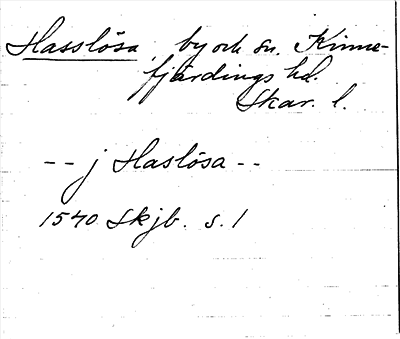 Hasslösa, by och sn. Kinne-
fjärdings hd.
Skar. l.
-- j Haslösa --
1540 Skjb. s. 1